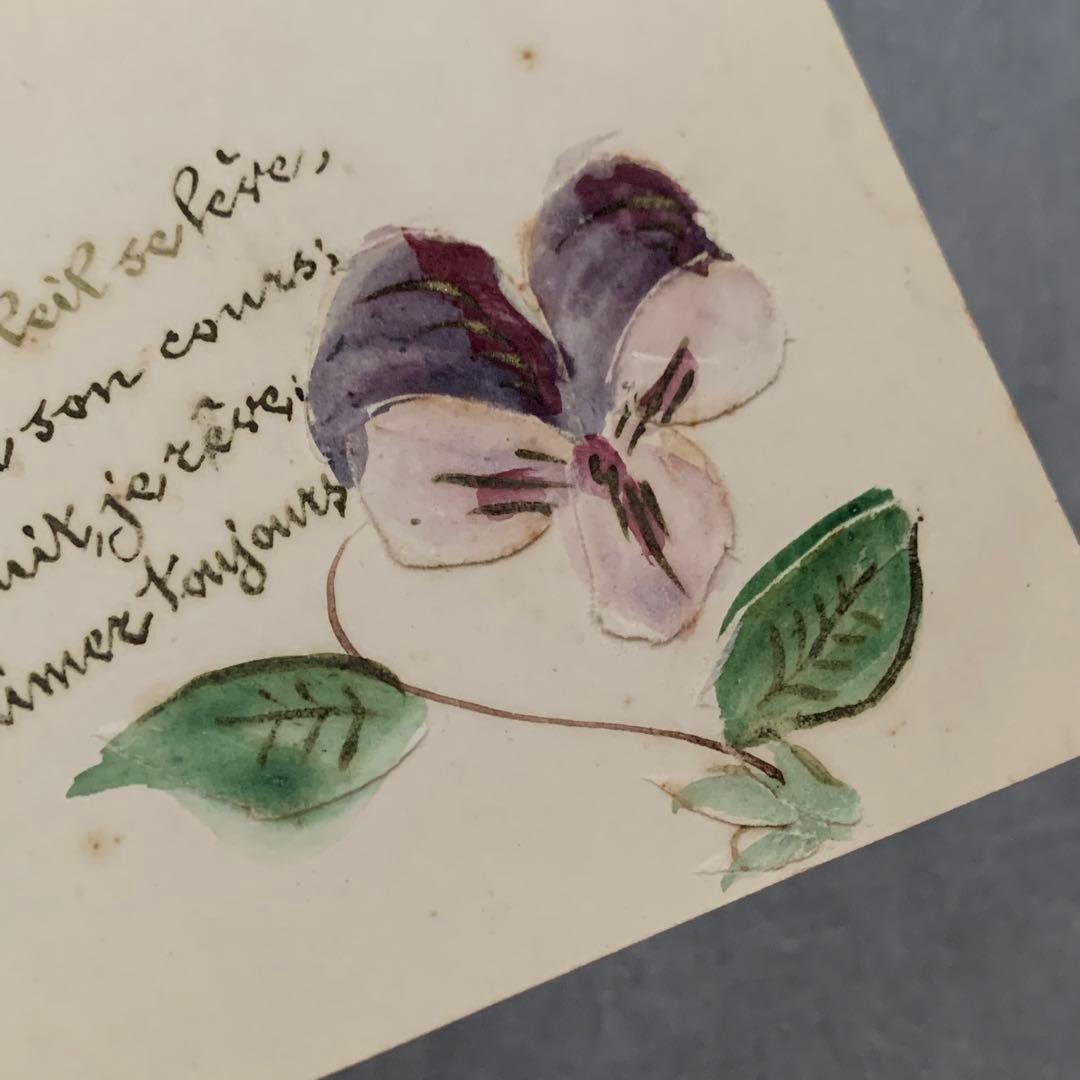 leil se lève,
son cours;
uit, je rêve;
aimer toujours